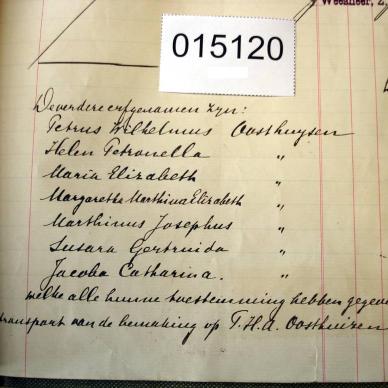 Weesheer, Z.
015120
De verdere erfgenamen zyn:
Petrus Wilhelmus Oosthuysen
Helen Petronella "
Maria Elizabeth "
Margaretha Marthina Elizabeth "
Marthinus Josephus "
Susara Gertruida "
Jacoba Catharina. "
welke alle hunne toestemming hebben gegeve
transport van de bemaking op T.H.A. Oosthuizen